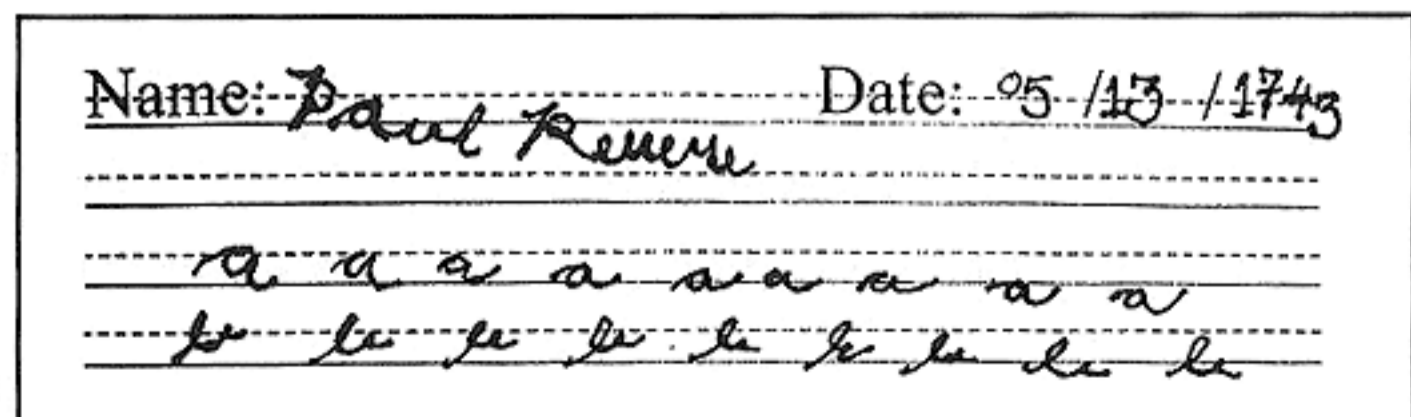 Name: Paul Revere Date: 05/13/1743
a a a a a a a a a
b b b b b b b b b